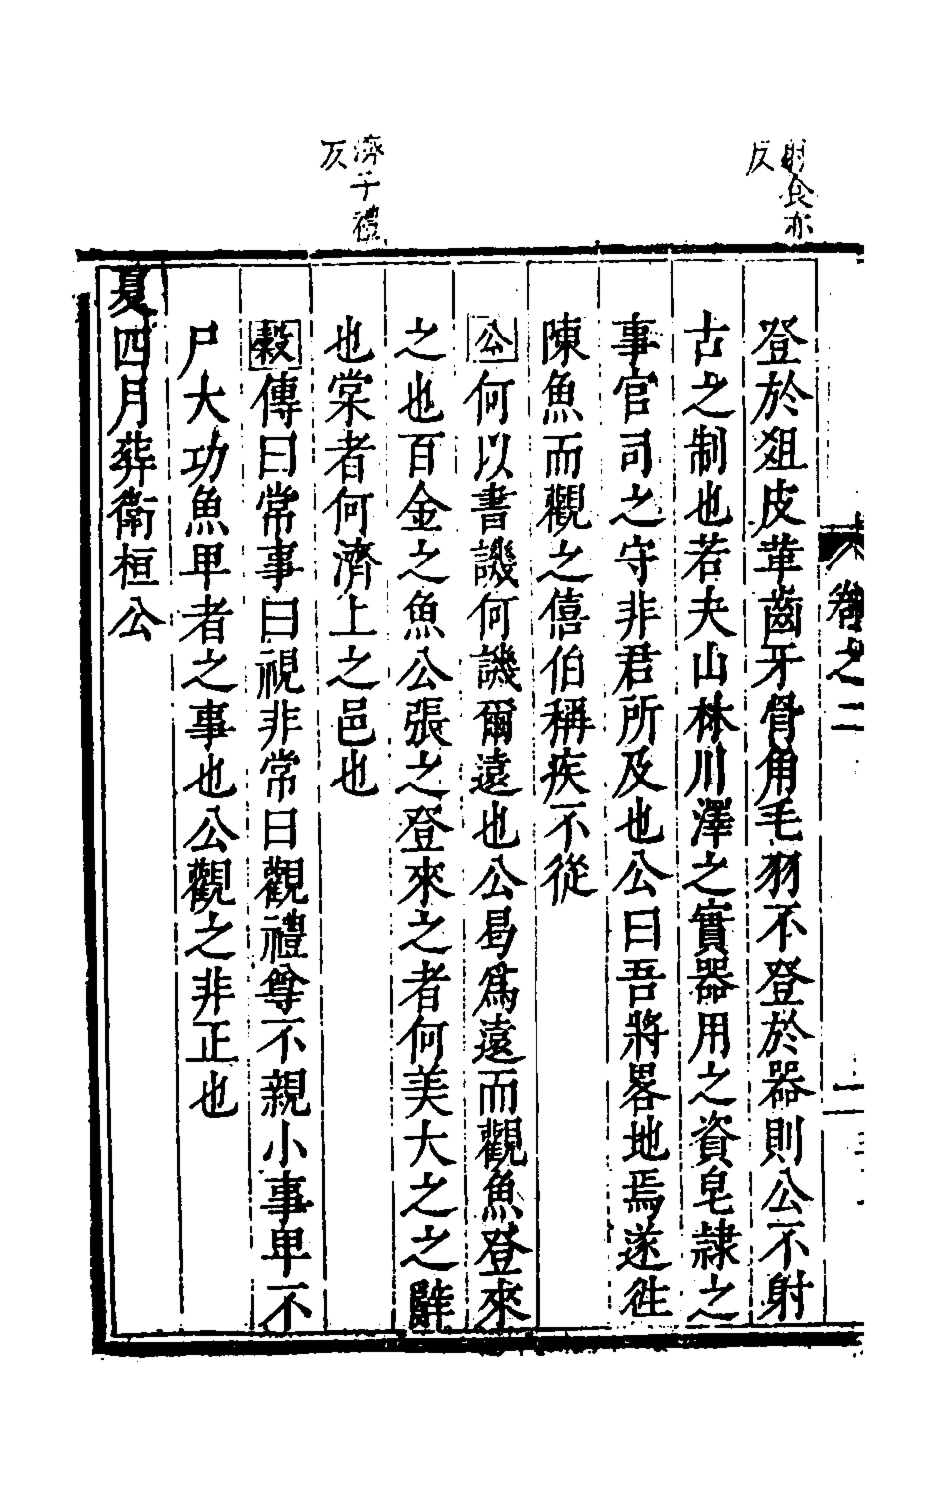 射食亦
反
濟子禮
反
登於爼皮革齒牙骨角毛羽不登於器則公不射
古之制也若夫山林川澤之實器用之資皂隷之
事官司之守非君所及也公曰吾將畧地焉遂徃
陳魚而觀之僖伯稱疾不從
公何以書譏何譏爾遠也公曷爲遠而觀魚登來
之也百金之魚公張之登來之者何美大之之辭
也棠者何濟上之邑也
穀傳曰常事曰視非常曰觀禮尊不親小事卑不
尸大功魚卑者之事也公觀之非正也
夏四月葬衛桓公
卷之二